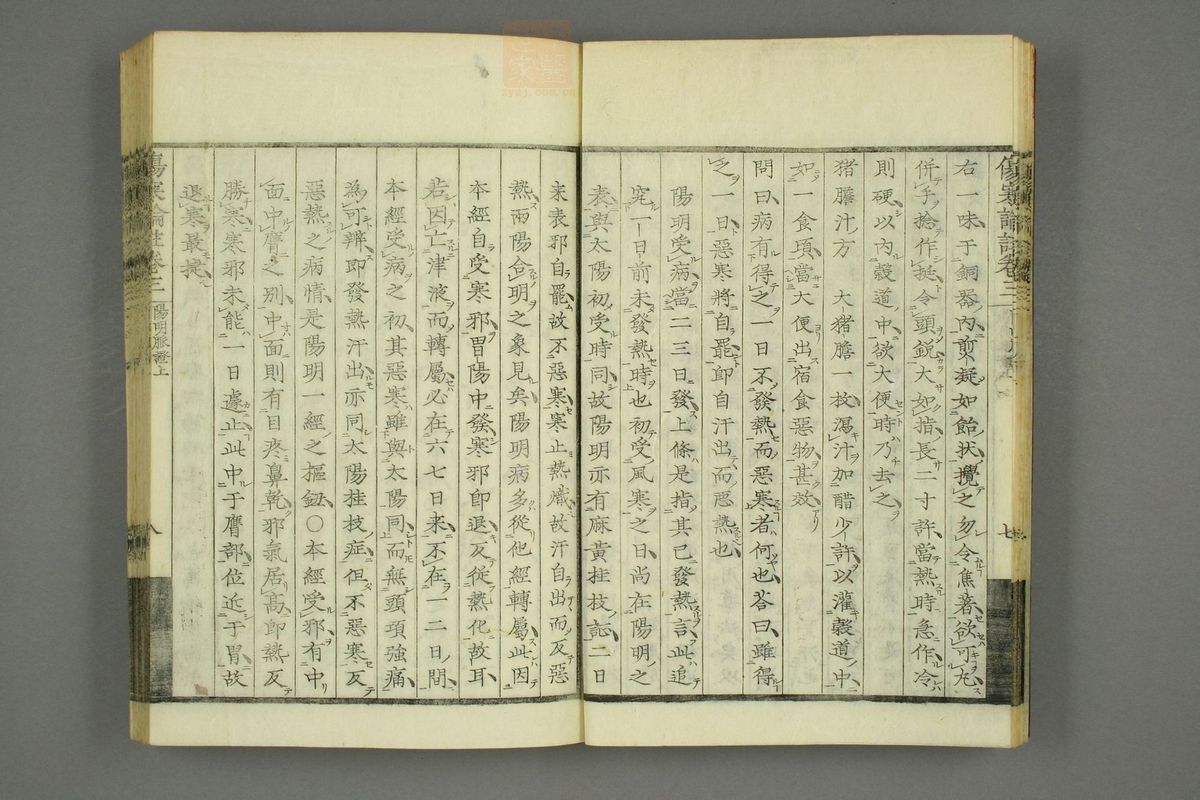 右一味于銅器内煎凝如飴狀攪之勿令焦著欲可丸
併手捻作挺令頭銳大如指長二寸許當熱時急作冷
則硬以内穀道中欲大便時乃去之
猪膽汁方　大猪膽一枚瀉汁加醋少許以灌穀道中
如一食頃當大便出宿食惡物甚效
問曰病有得之一日不發熱而惡寒者何也荅曰雖得
之一日惡寒將自罷卽自汗出而惡熱也
陽明受病當二三日發上條是指其已發熱言此追
究一日前未發熱時也初受風寒之日尚在陽明之
表與太陽初受時同故陽明亦有麻黃桂枝証二日
来表邪自罷故不惡寒寒止熱熾故汗自出而反惡
熱兩陽合明之象見矣陽明病多從他經轉屬此因
本經自受寒邪胃陽中發寒邪卽退反從熱化故耳
若因亡津液而轉屬必在六七日来不在一二日間
本經受病之初其惡寒雖與太陽同而無頭項強痛
為可辨即發熱汗出亦同太陽桂枝症但不惡寒反
惡熱之病情是陽明一經之樞鈕○本經受邪有中
面中膺之别中面則有目疼鼻乾邪氣居高即熱反
勝寒寒邪未能一日遽止此中于膺部位近于胃故
退寒最捷
傷寒論註卷三　陽明脈證上
八
七
zyzj.com.cn